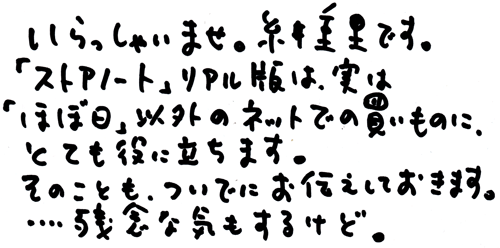 いらっしゃいませ。糸井重里です。
「ストアノート」リアル版は、実は
「ほぼ日」以外のネットでの買いものに、
とても役に立ちます。
そのことも、ついでにお伝えしておきます。
‥‥残念な気もするけど。